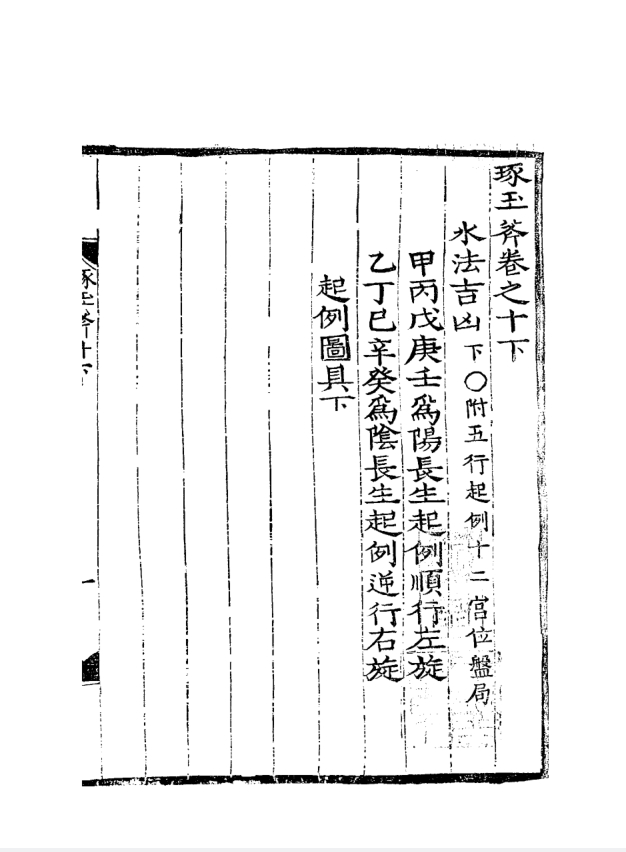 琢玉斧卷之十下
水法吉凶下〇附五行起例十二宮位盤局
甲丙戊庚壬爲陽長生起例順行左旋
乙丁巳辛癸爲陰長生起例逆行右旋
起例圖具下
琢玉斧十下
一